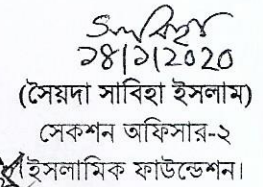 ১৪/১/2020
(সৈয়দা সাবিহা ইসলাম)
সেকশন অফিসার-২
ইসলামিক ফাউন্ডেশন।